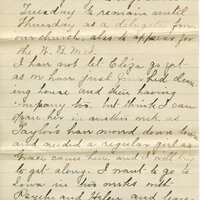 Tuesday to remain until
Thursday as a delegate from
our church, also to appear for
the W. B. M.
I have not let Eliza go yet
as we have just finished clean
ing house and then having
company too. but think I can
spare her in another week, as
Taylors have moved down
and needed a regular girl as
Grace came here, and I will try
to get along. I want to go to
Iowa in two weeks with
and Helen and